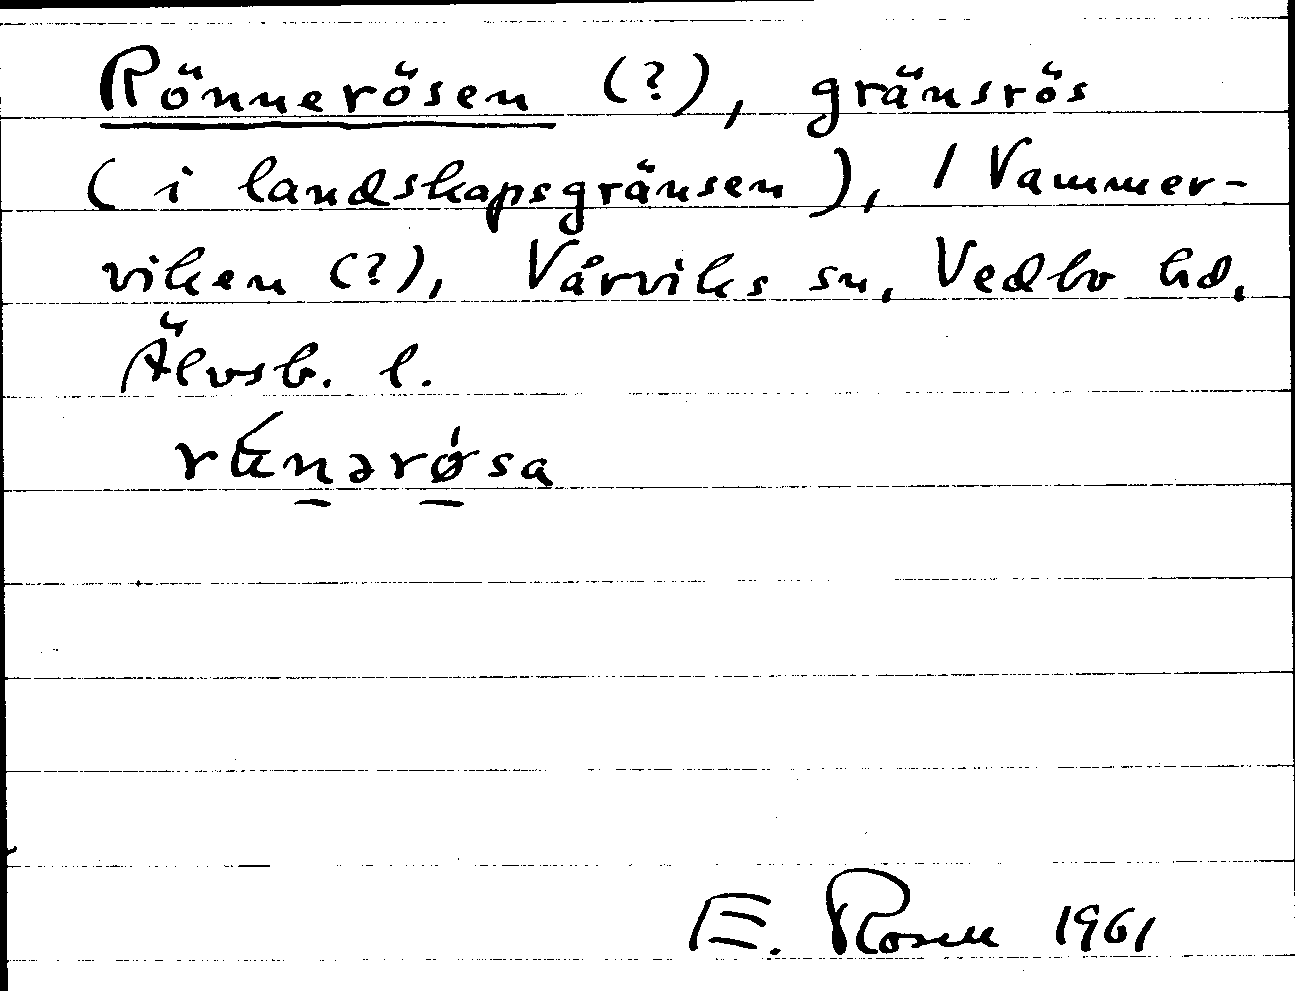 Rönnerösen (?), gränsrös
(i landskapsgränsen), / Vammer-
viken (?), Vårviks sn, Vedbo hd,
Älvsb. l.
E. Rosen 1961